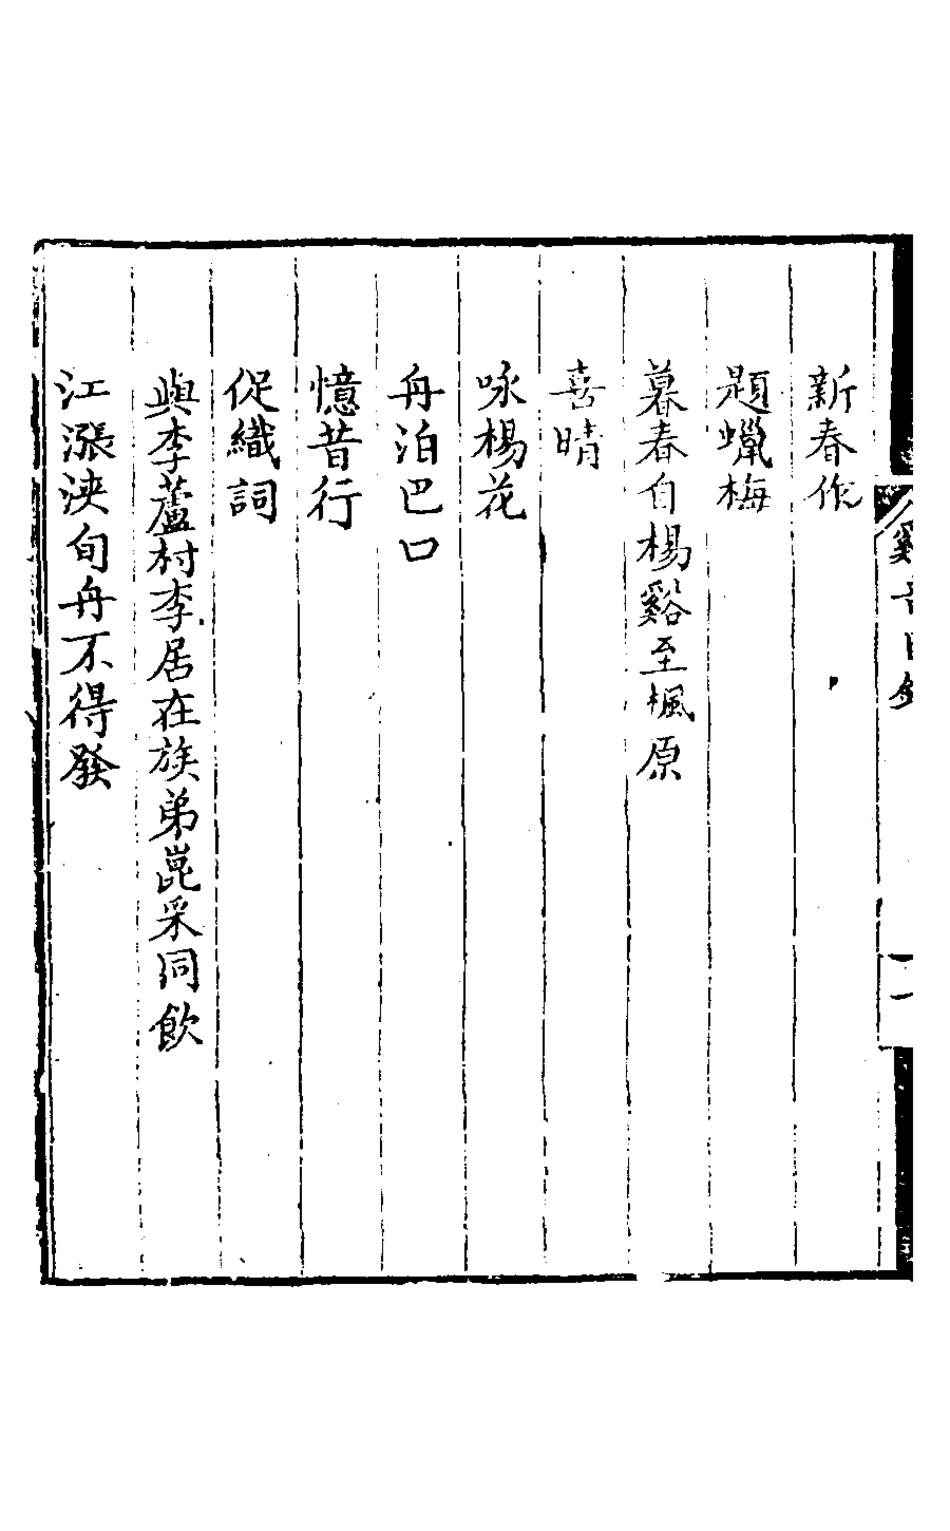 新春作
題蠟梅
暮春自楊谿至楓原
喜晴
咏楊花
舟泊巴口
憶昔行
促織詞
與李蘆村李居在族弟崑采同飲
江漲浹旬舟不得發